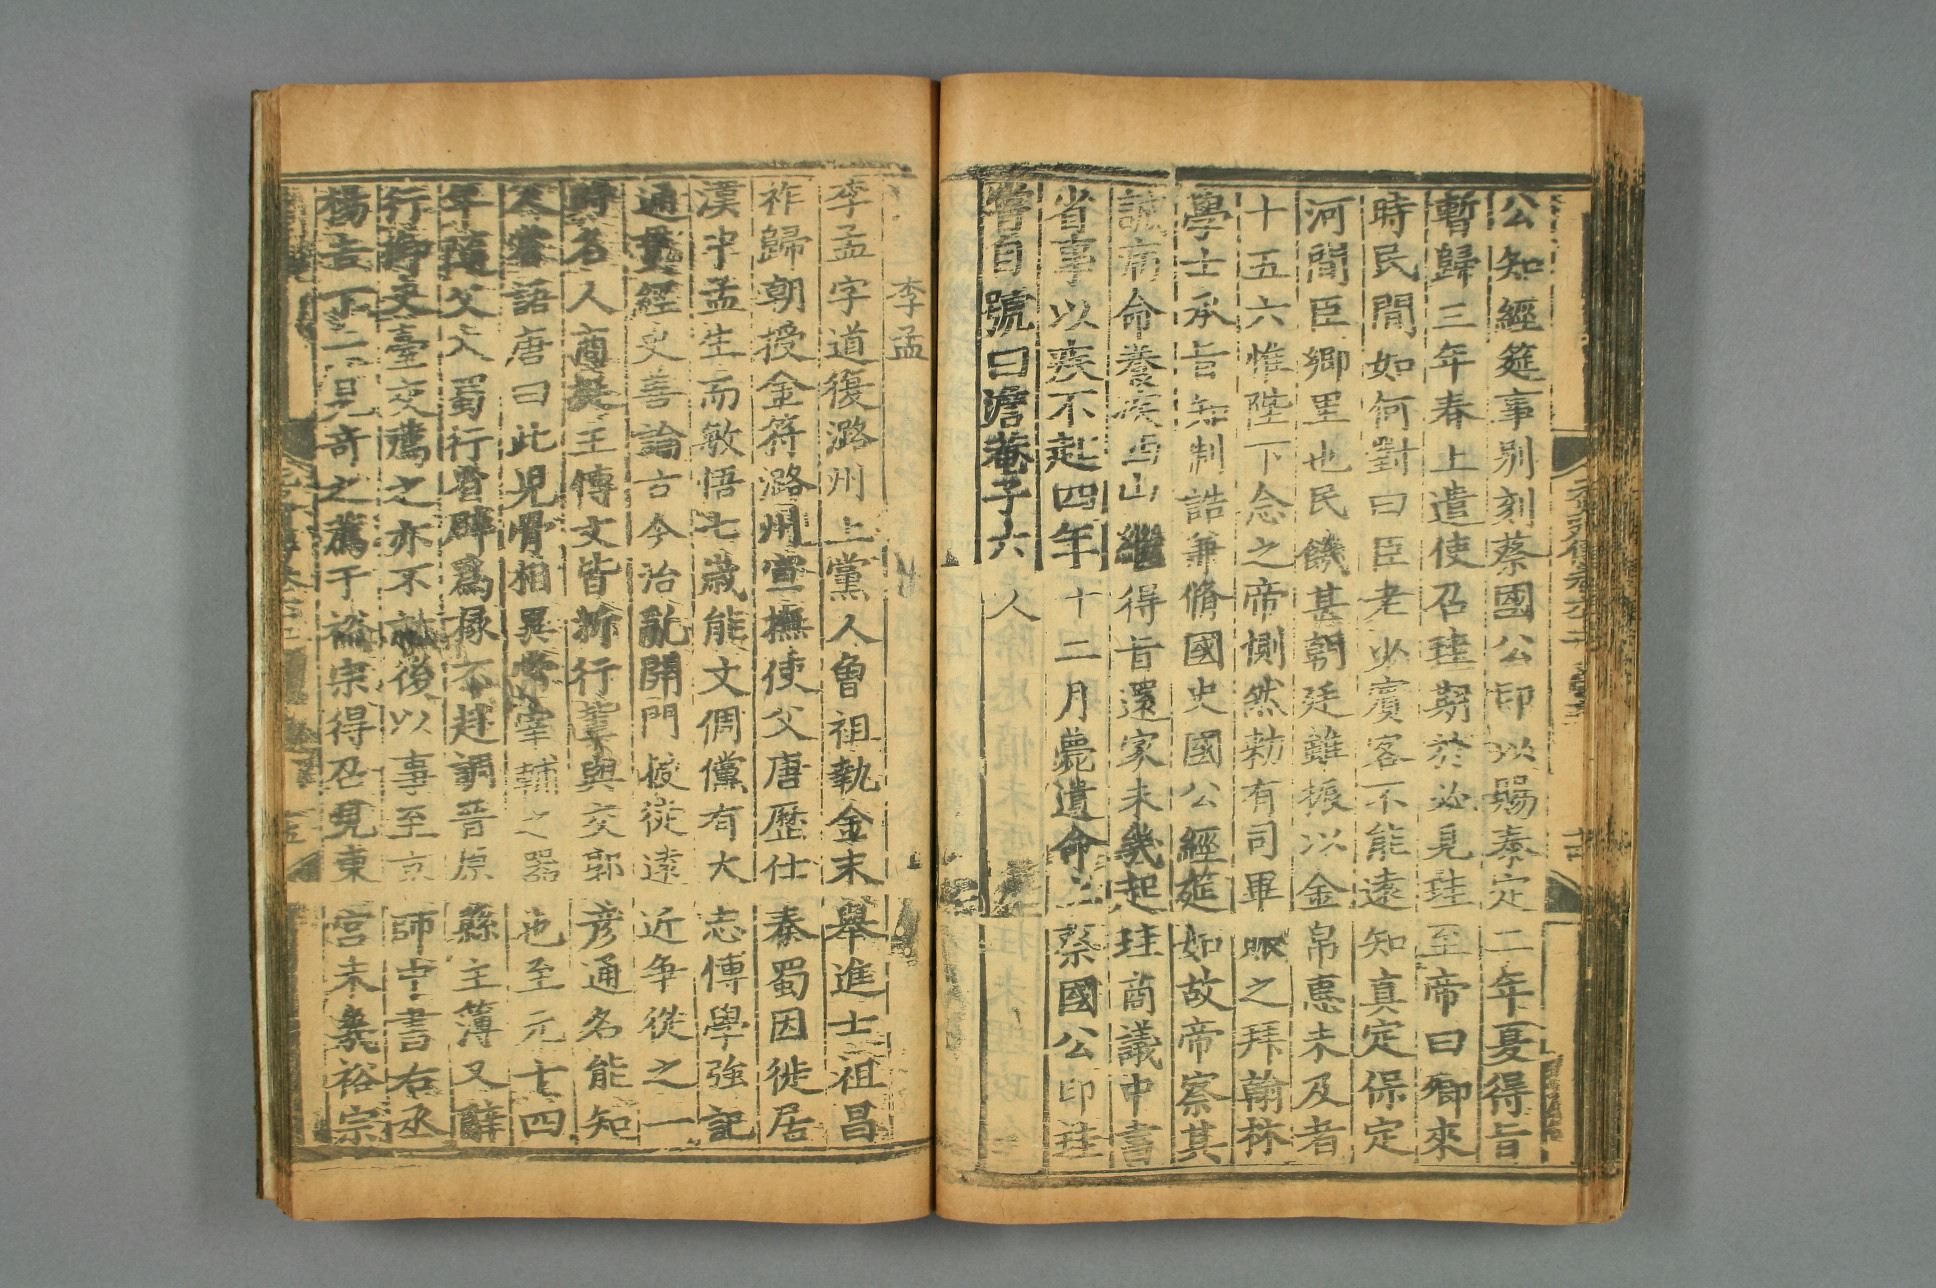 公知經筵事別刻蔡國公印以賜泰定二年夏得旨
暫歸三年春上遣使召珪期於必見珪至帝曰卿來
時民間如何對曰臣老少賓客不能遠知真定保定
河間臣鄉里也民饑甚朝廷雖振以金帛惠未及者
十五六惟陛下念之帝惻然勑有司畢賑之拜翰林
學士承旨知制誥兼脩國史國公經筵如故帝察其
誠病命養疾西山繼得旨還家未幾起珪商議中書
省事以疾不起四年十二月薨遺命上蔡國公印珪
嘗自號曰澹菴子六人
李孟
李孟字道復潞州上黨人曾祖執金末舉進士祖昌
祚歸朝授金符潞州宣撫使父唐歷仕秦蜀因徙居
漢中孟生而敏悟七歲能文倜儻有大志博學強記
通貫經史善論古今治亂開門授徒遠近争從之一
時名人商挺王博文皆折行輩與交郭彦通名能知
人嘗語唐曰此兒骨相異常宰輔之器也至元十四
年隨父入蜀行省辟爲掾不赴調晋原縣主簿又辭
行御史臺交薦之亦不就後以事至京師中書右丞
楊吉丁一見奇之薦于裕宗得召見東宮未幾裕宗